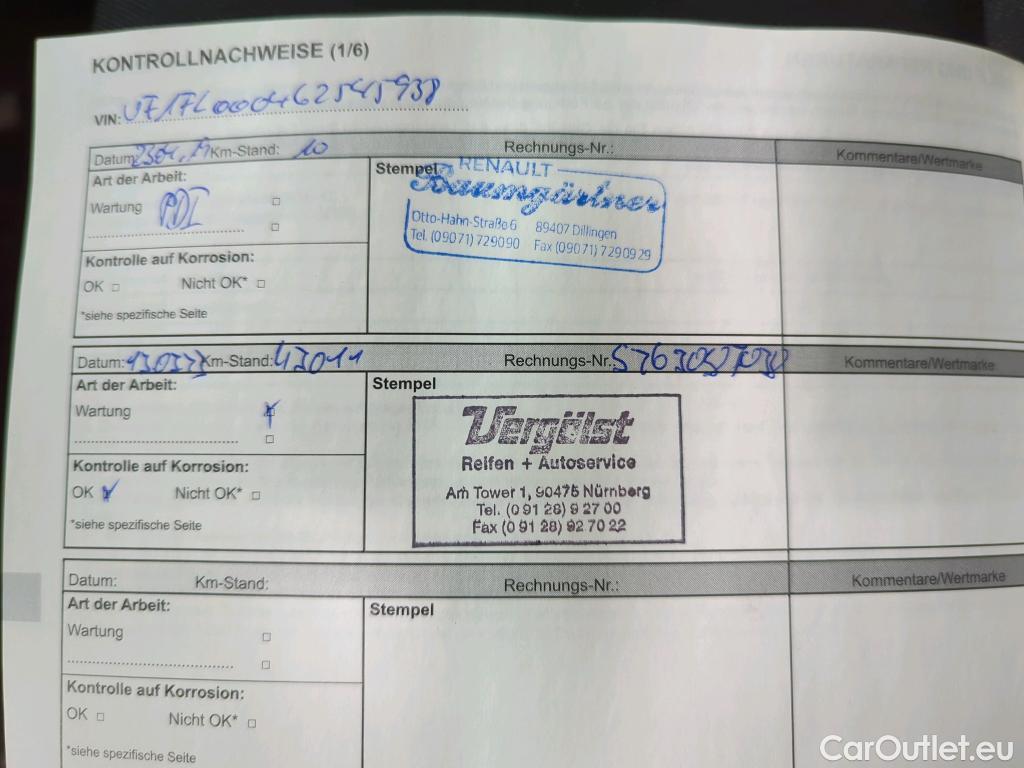 KONTROLLNACHWEISE (1/6)
VIN:
Datum Km-Stand: 10 Rechnungs-Nr.: Kommentare/Wertmarke
Art der Arbeit: Stempel RENAULT
Baumgärtner
Wartung PDI
Otto-Hahn-Straße 6 89407 Dillingen
Tel. (09071) 729090 Fax (09071) 7290929
Kontrolle auf Korrosion:
OK Nicht OK*
*siehe spezifische Seite
Datum: Km-Stand: 43011 Rechnungs-Nr.: Kommentare/Wertmarke
Art der Arbeit: Stempel
Wartung
Vergölst
Reifen + Autoservice
Kontrolle auf Korrosion:
OK Nicht OK*
Am Tower 1, 90475 Nürnberg
Tel. (0 91 28) 9 27 00
Fax (0 91 28) 92 70 22
*siehe spezifische Seite
Datum: Km-Stand: Rechnungs-Nr.: Kommentare/Wertmarke
Art der Arbeit: Stempel
Wartung
Kontrolle auf Korrosion:
OK Nicht OK*
*siehe spezifische Seite
CarOutlet.eu